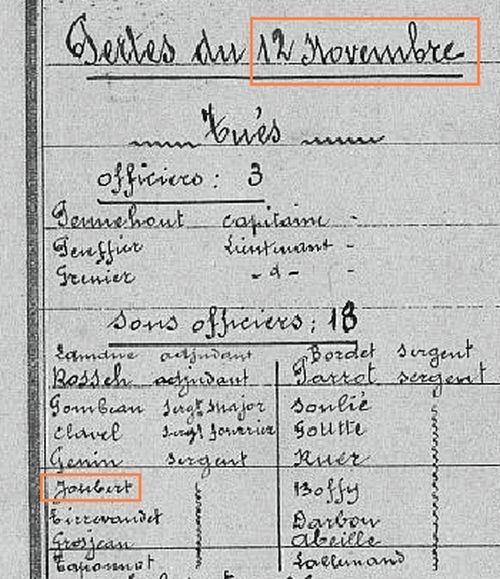 Pertes du 12 Novembre
Tués
officiers : 3
capitaine -
Lieutenant -
Grenier - d - -
Sous officiers : 18
Lamaue adjudant
Rossch adjudant
Gombeau sergt major
Clavel sergt fourrier
Genin sergent
Joubert
Grosjean
Bordet sergent
Parrot sergent
Soulié
Goutte
Ruer
Boffy
Darbou
Abeille
Lallemand